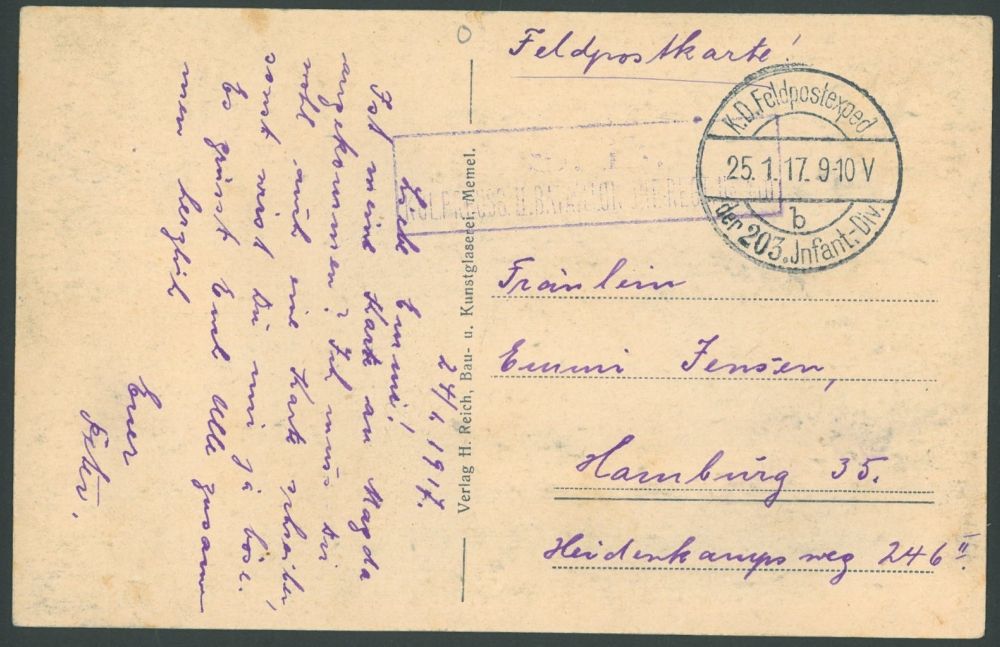 Feldpostkarte!
K.D. Feldpostexped
25.1.17. 9-10 V
b
der 203. Jnfant.-Div.
Fräulein
Emmi Jensen,
Hamburg 35.
Heidenkampsweg 246 II.
Verlag H. Reich, Bau- u. Kunstglaserei, Memel.
24/1.1917.
Liebe Emmi!
Ist meine Karte an Magda
angekommen? Ich muss Dir
wohl auch eine Karte schreiben,
sonst wirst Du mir ja böse.
Es grüsst Euch Alle zusam
men herzlich
Euer
Peter.